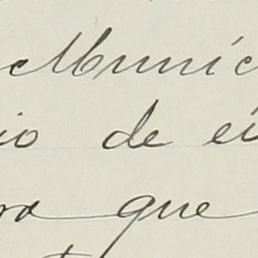 Munic
io de ei
ra que